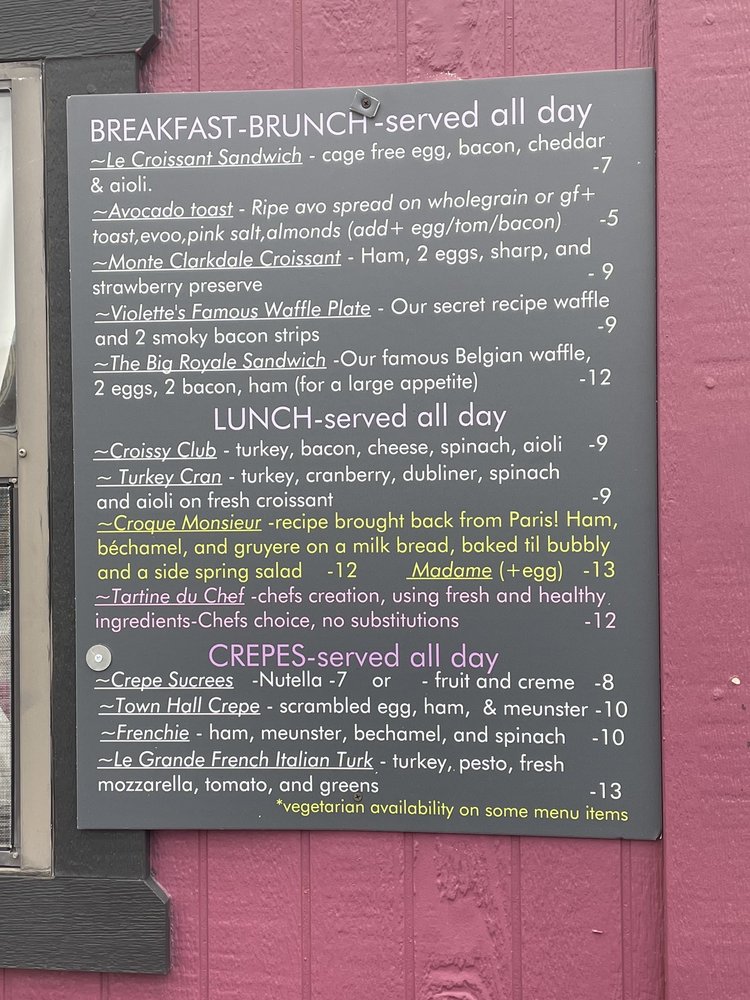 BREAKFAST-BRUNCH-served all day
~Le Croissant Sandwich - cage free egg, bacon, cheddar
& aioli. -7
~Avocado toast - Ripe avo spread on wholegrain or gf+
toast,evoo,pink salt,almonds (add+ egg/tom/bacon) -5
~Monte Clarkdale Croissant - Ham, 2 eggs, sharp, and
strawberry preserve - 9
~Violette's Famous Waffle Plate - Our secret recipe waffle
and 2 smoky bacon strips -9
~The Big Royale Sandwich -Our famous Belgian waffle,
2 eggs, 2 bacon, ham (for a large appetite) -12
LUNCH-served all day
~Croissy Club - turkey, bacon, cheese, spinach, aioli -9
~ Turkey Cran - turkey, cranberry, dubliner, spinach
and aioli on fresh croissant -9
~Croque Monsieur -recipe brought back from Paris! Ham,
béchamel, and gruyere on a milk bread, baked til bubbly
and a side spring salad -12 Madame (+egg) -13
~Tartine du Chef -chefs creation, using fresh and healthy
ingredients-Chefs choice, no substitutions -12
CREPES-served all day
~Crepe Sucrees -Nutella -7 or - fruit and creme -8
~Town Hall Crepe - scrambled egg, ham, & meunster -10
~Frenchie - ham, meunster, bechamel, and spinach -10
~Le Grande French Italian Turk - turkey, pesto, fresh
mozzarella, tomato, and greens -13
*vegetarian availability on some menu items